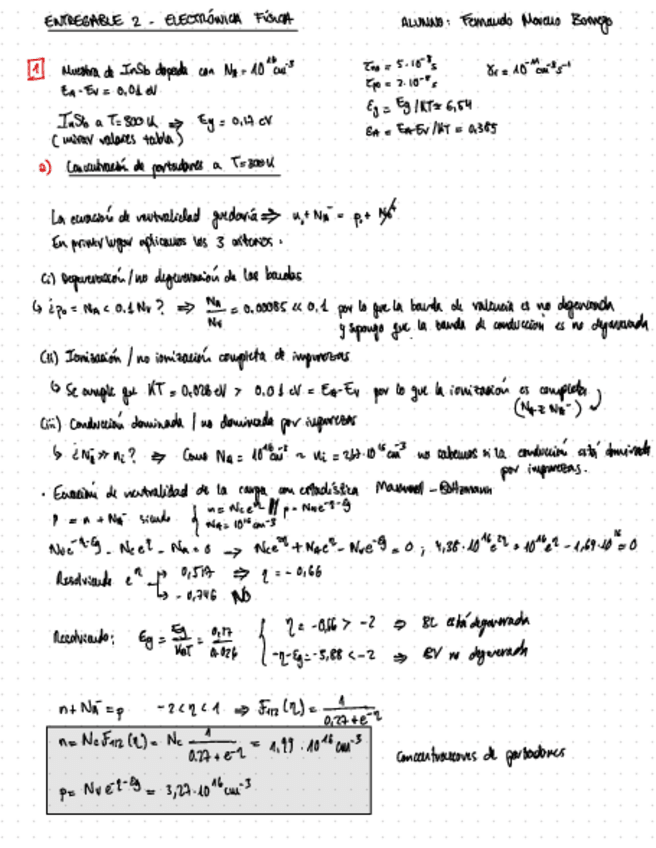 ENTREGABLE 2 - ELECTRÓNICA FÍSICA
ALUMNO: Fernando Moreno Borrego
1 Muestra de InSb dopada con N_A = 10^16 cm^-3
E_A - E_V = 0,01 eV
InSb a T=300K ⇒ Eg = 0,17 eV
(mirar valores tabla)
τno = 5·10^-8 s
τpo = 2·10^-8 s
εg = Eg/KT = 6,54
εA = EA-EV/KT = 0,385
a) Concentración de portadores a T=300K
La ecuación de neutralidad quedaría ⇒ n + N_A^- = p +
En primer lugar aplicamos los 3 criterios.
(i) Degeneración / no degeneración de las bandas
↳ ¿p₀ = N_A < 0.1 N_V? ⇒ N_A/N_V = 0.00085 << 0,1 por lo que la banda de valencia es no degenerada
y supongo que la banda de conducción es no degenerada
(ii) Ionización / no ionización completa de impurezas
↳ Se cumple que KT = 0,026 eV > 0.01 eV = E_A - E_V por lo que la ionización es completa
(N_A ≈ N_A^-)
(iii) Conducción dominada / no dominada por impurezas
↳ ¿N_A^- >> n_i? ⇒ Como N_A = 10^16 cm^-3 ~ n_i = 10^16 cm^-3 no sabemos si la conducción está dominada
por impurezas.
· Ecuación de neutralidad de la carga con estadística Maxwell-Boltzmann
p = n + N_A^- siendo { n = N_C e^η // p = N_V e^-η-εg
N_A = 10^16 cm^-3
N_V e^-η-εg - N_C e^η - N_A = 0 → N_C e^2η + N_A e^η - N_V e^-εg = 0 ; 4,38·10^16 e^2η + 10^16 e^η - 1,69·10^16 = 0
Resolviendo e^η → 0,517 ⇒ η = -0,66
↳ -0,746 NO
Resolviendo: εg = Eg/K₀T = 0,17/0.026
{ η = -0,66 > -2 ⇒ BC está degenerada
-η-εg = -5,88 < -2 ⇒ BV no degenerada
n + N_A^- = p -2 < η < 1 ⇒ F_1/2 (η) = 1/0,27 + e^-η
n = N_C F_1/2 (η) = N_C 1/0.27 + e^-η = 1,99·10^16 cm^-3
p = N_V e^-η-εg = 3,27·10^16 cm^-3
Concentraciones de portadores